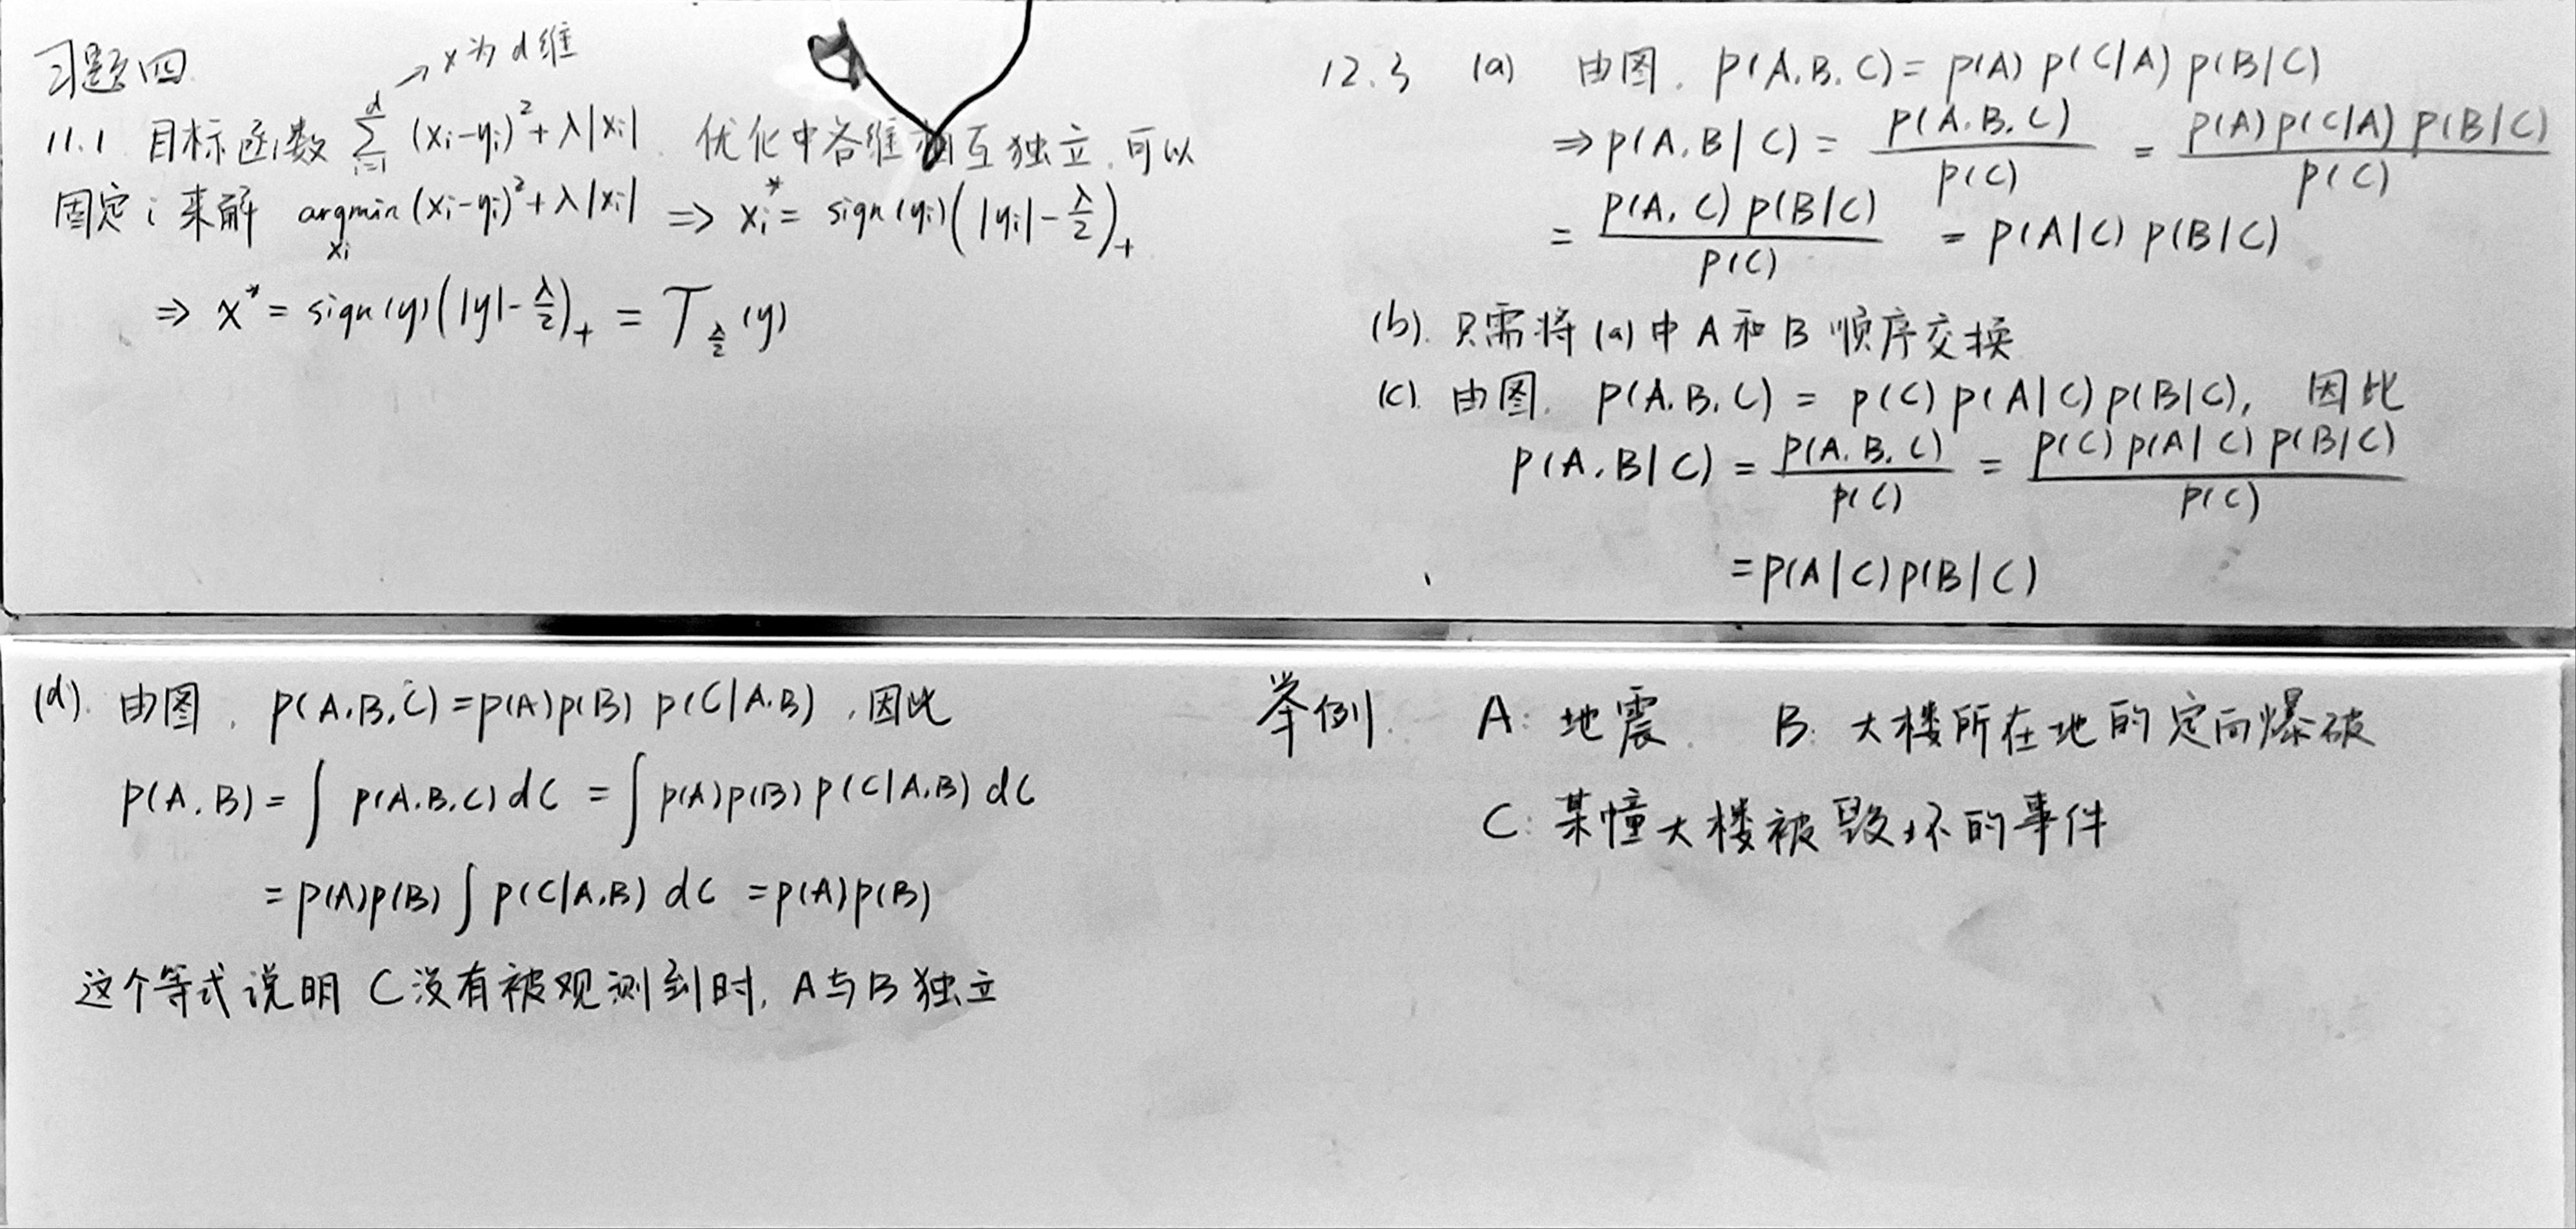 习题四
→ x为d维
11.1 目标函数 $\sum_{i=1}^{d} (x_i-y_i)^2+\lambda|x_i|$. 优化中各维相互独立,可以
固定i来解 $\underset{x_i}{argmin} (x_i-y_i)^2+\lambda|x_i| \Rightarrow x_i^* = sign(y_i)(|y_i|-\frac{\lambda}{2})_+$
$\Rightarrow x^* = sign(y)(|y|-\frac{\lambda}{2})_+ = T_{\frac{\lambda}{2}}(y)$
12.3 (a) 由图. p(A.B.C)= p(A) p(C|A) p(B|C)
$\Rightarrow p(A.B|C) = \frac{p(A.B.C)}{p(C)} = \frac{p(A)p(C|A)p(B|C)}{p(C)}$
$= \frac{p(A,C)p(B|C)}{p(C)} = p(A|C)p(B|C)$
(b). 只需将(a)中A和B顺序交换
(c). 由图. p(A.B.C) = p(C)p(A|C)p(B|C), 因此
$p(A.B|C) = \frac{p(A.B.C)}{p(C)} = \frac{p(C)p(A|C)p(B|C)}{p(C)}$
=p(A|C)p(B|C)
(d). 由图. p(A.B.C)=p(A)p(B) p(C|A.B),因此
$p(A.B)= \int p(A.B.C)dC = \int p(A)p(B)p(C|A.B)dC$
$=p(A)p(B)\int p(C|A.B)dC =p(A)p(B)$
这个等式说明C没有被观测到时,A与B独立
举例. A: 地震. B: 大楼所在地的定向爆破
C: 某幢大楼被毁坏的事件